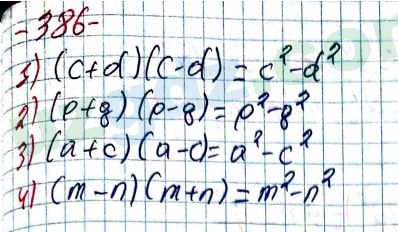 -386-
1) (c+d)(c-d)=c²-d²
2) (p+q)(p-q)=p²-q²
3) (a+c)(a-c)=a²-c²
4) (m-n)(m+n)=m²-n²